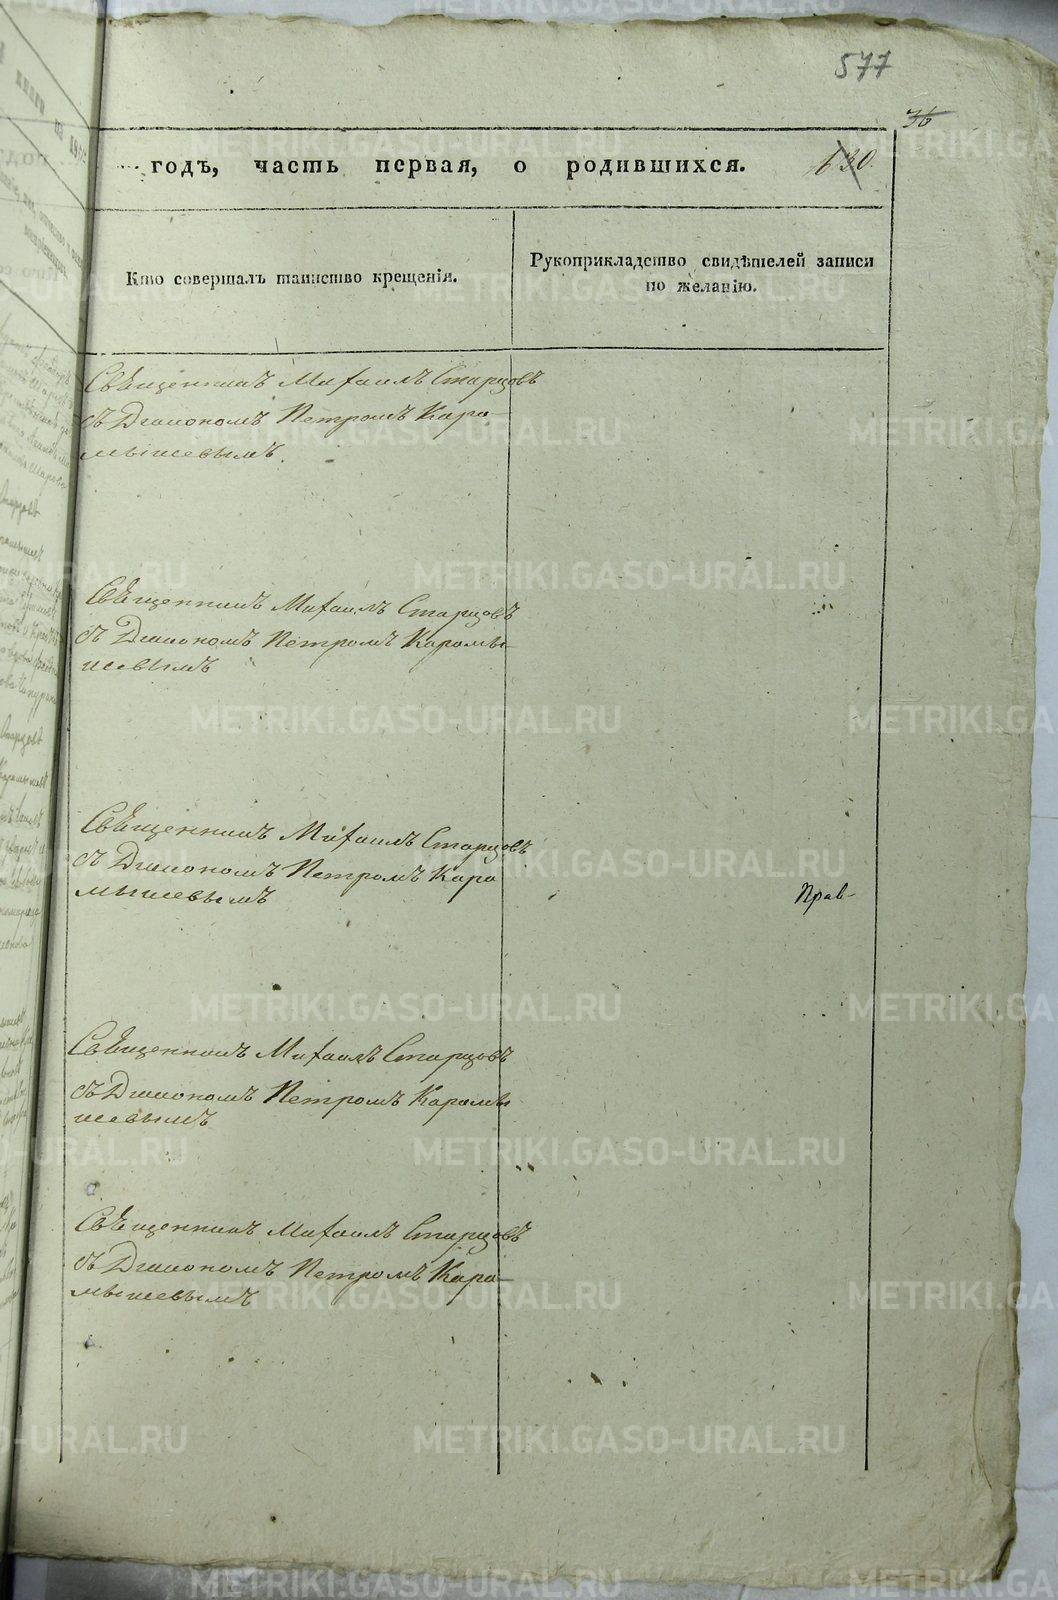 577
36
годъ, часть первая, о родившихся.
130.
Кто совершалъ таинство крещенія.
Рукоприкладство свидѣтелей записи
по желанію.
Священникъ Михаилъ Старцовъ
съ Діакономъ Петромъ Кара-
мышевымъ.
Священникъ Михаилъ Старцовъ
съ Діакономъ Петромъ Карамы-
шевымъ
Священникъ Михаилъ Старцовъ
съ Діакономъ Петромъ Кара
мышевымъ
Прав-
Священникъ Михаилъ Старцовъ
съ Діакономъ Петромъ Карамы
шевымъ
Священникъ Михаилъ Старцовъ
съ Діакономъ Петромъ Кара-
мышевымъ
METRIKI.GASO-URAL.RU